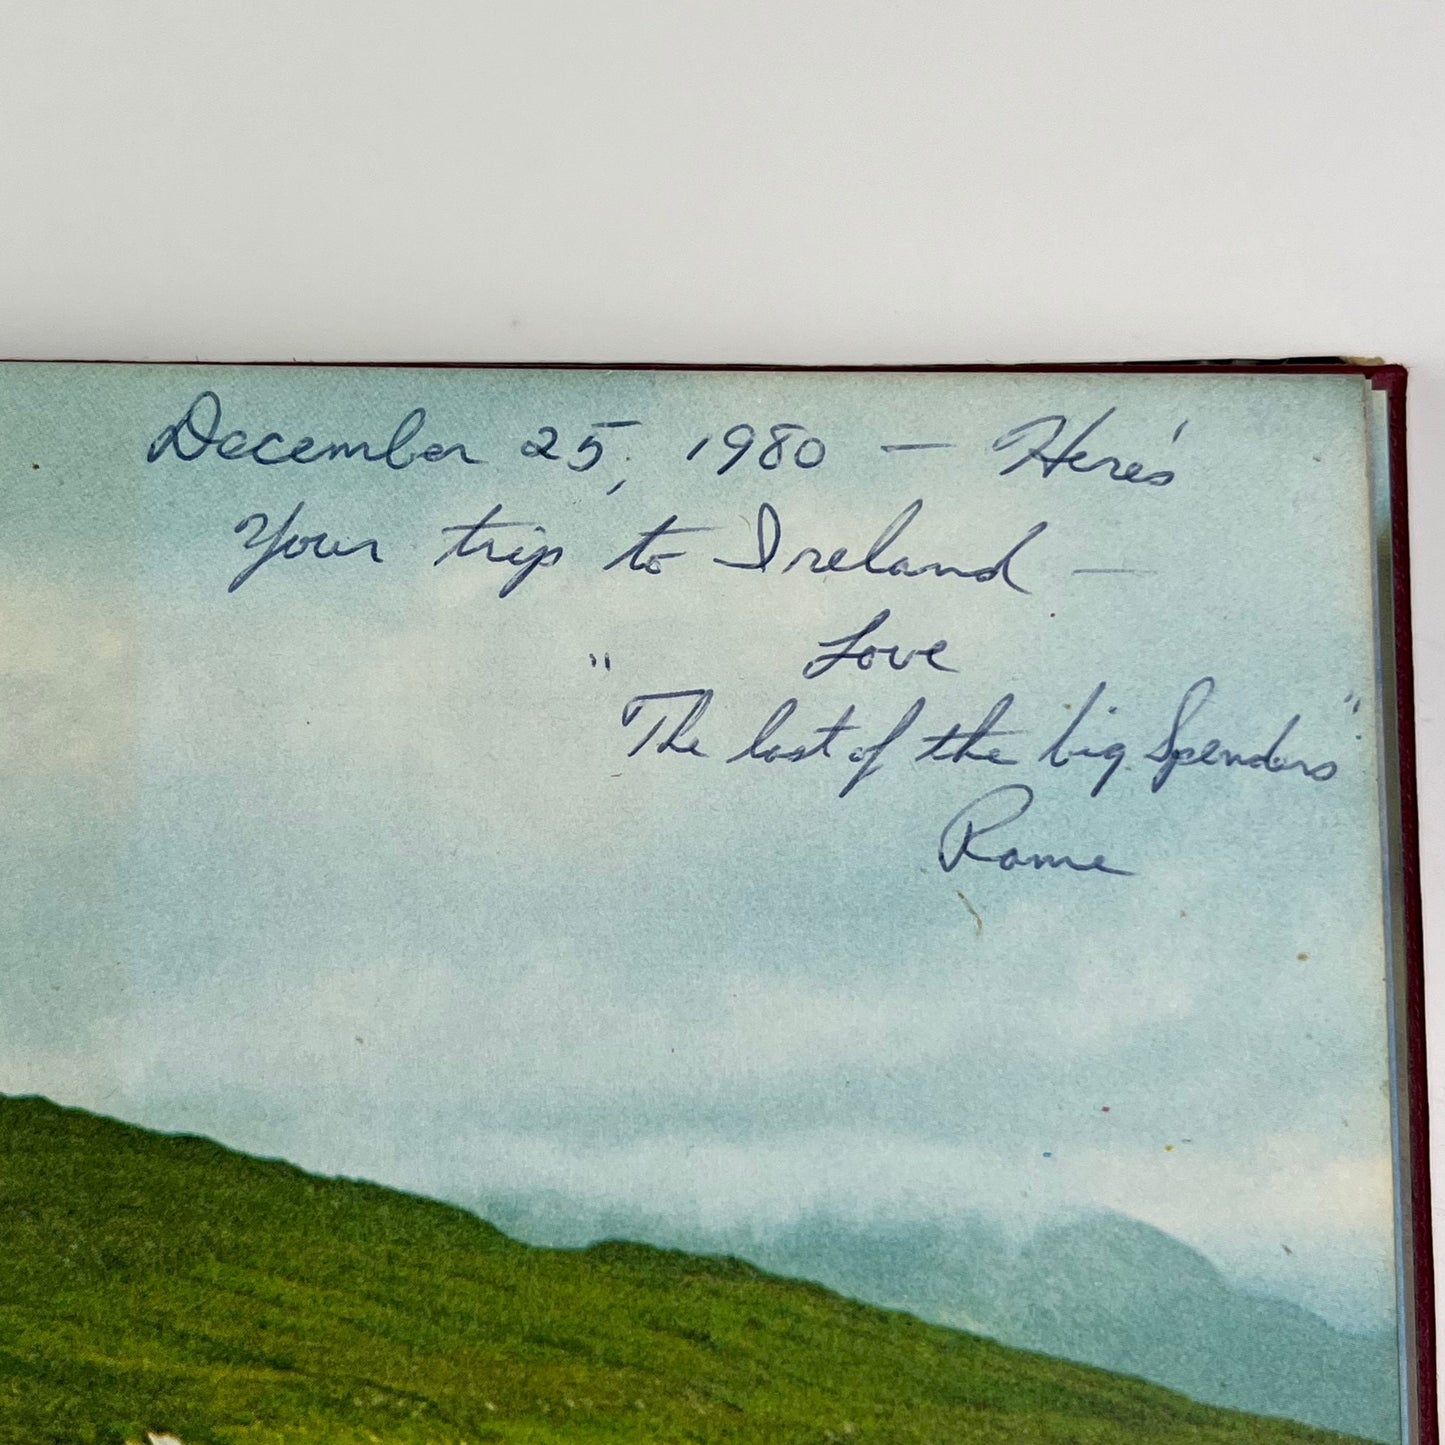 December 25, 1980 — Here's
Your trip to Ireland —
Love
"The last of the big Spenders"
Rome